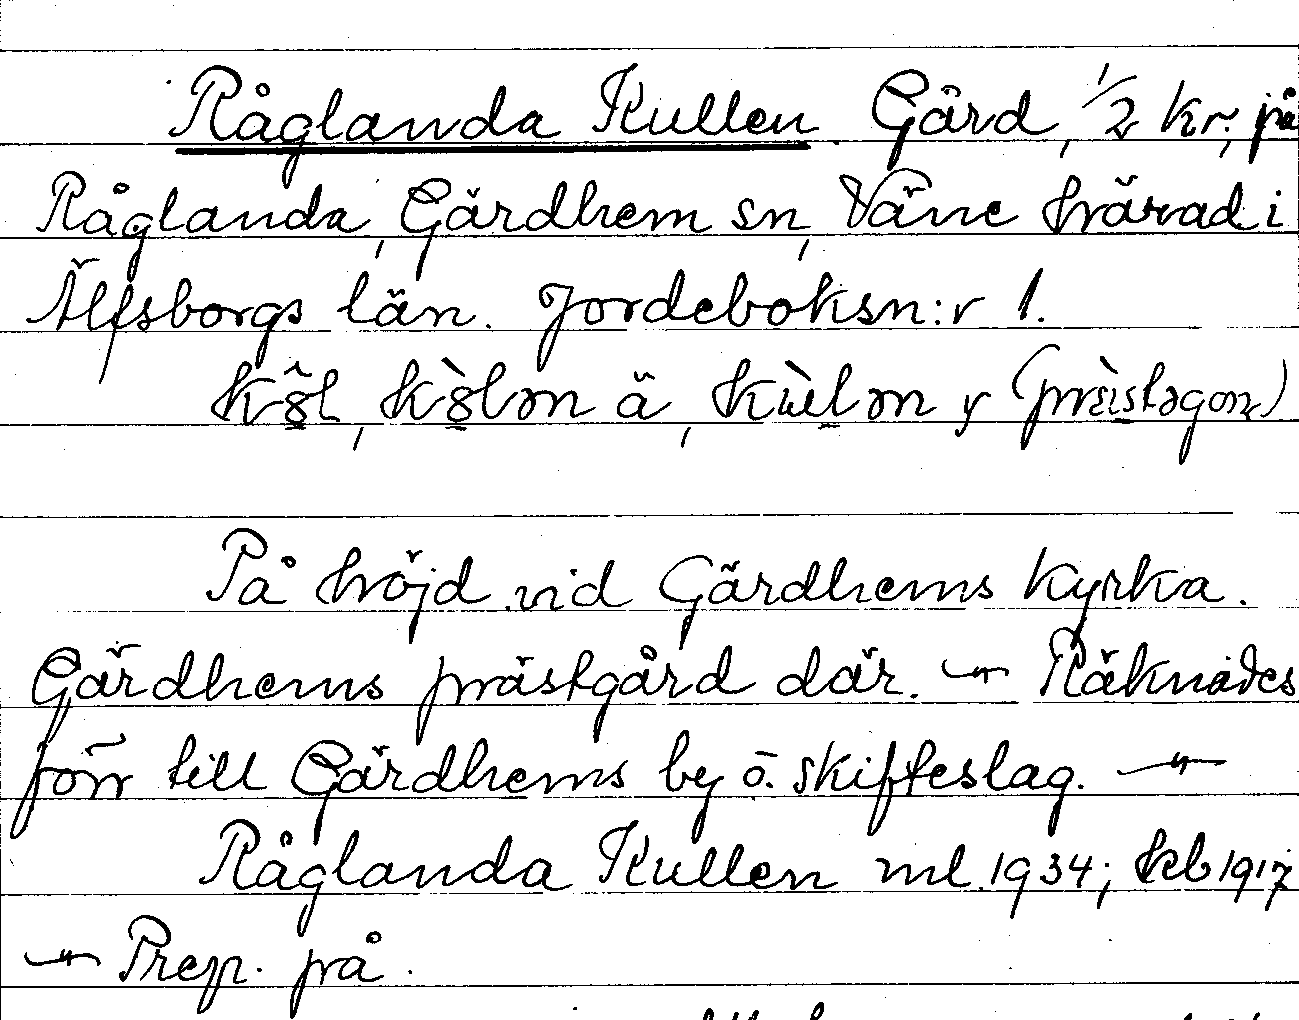 Råglanda Kullen Gård, 1/2 kr, på
Råglanda, Gärdhem sn, Väne härad i
Älfsborgs län. Jordeboksn:r 1.
ä, y
På höjd vid Gärdhems kyrka.
Gärdhems prästgård där. — Räknades
förr till Gärdhems by o. skifteslag. —
Råglanda Kullen ml. 1934; kb 1917
— Prep. på.